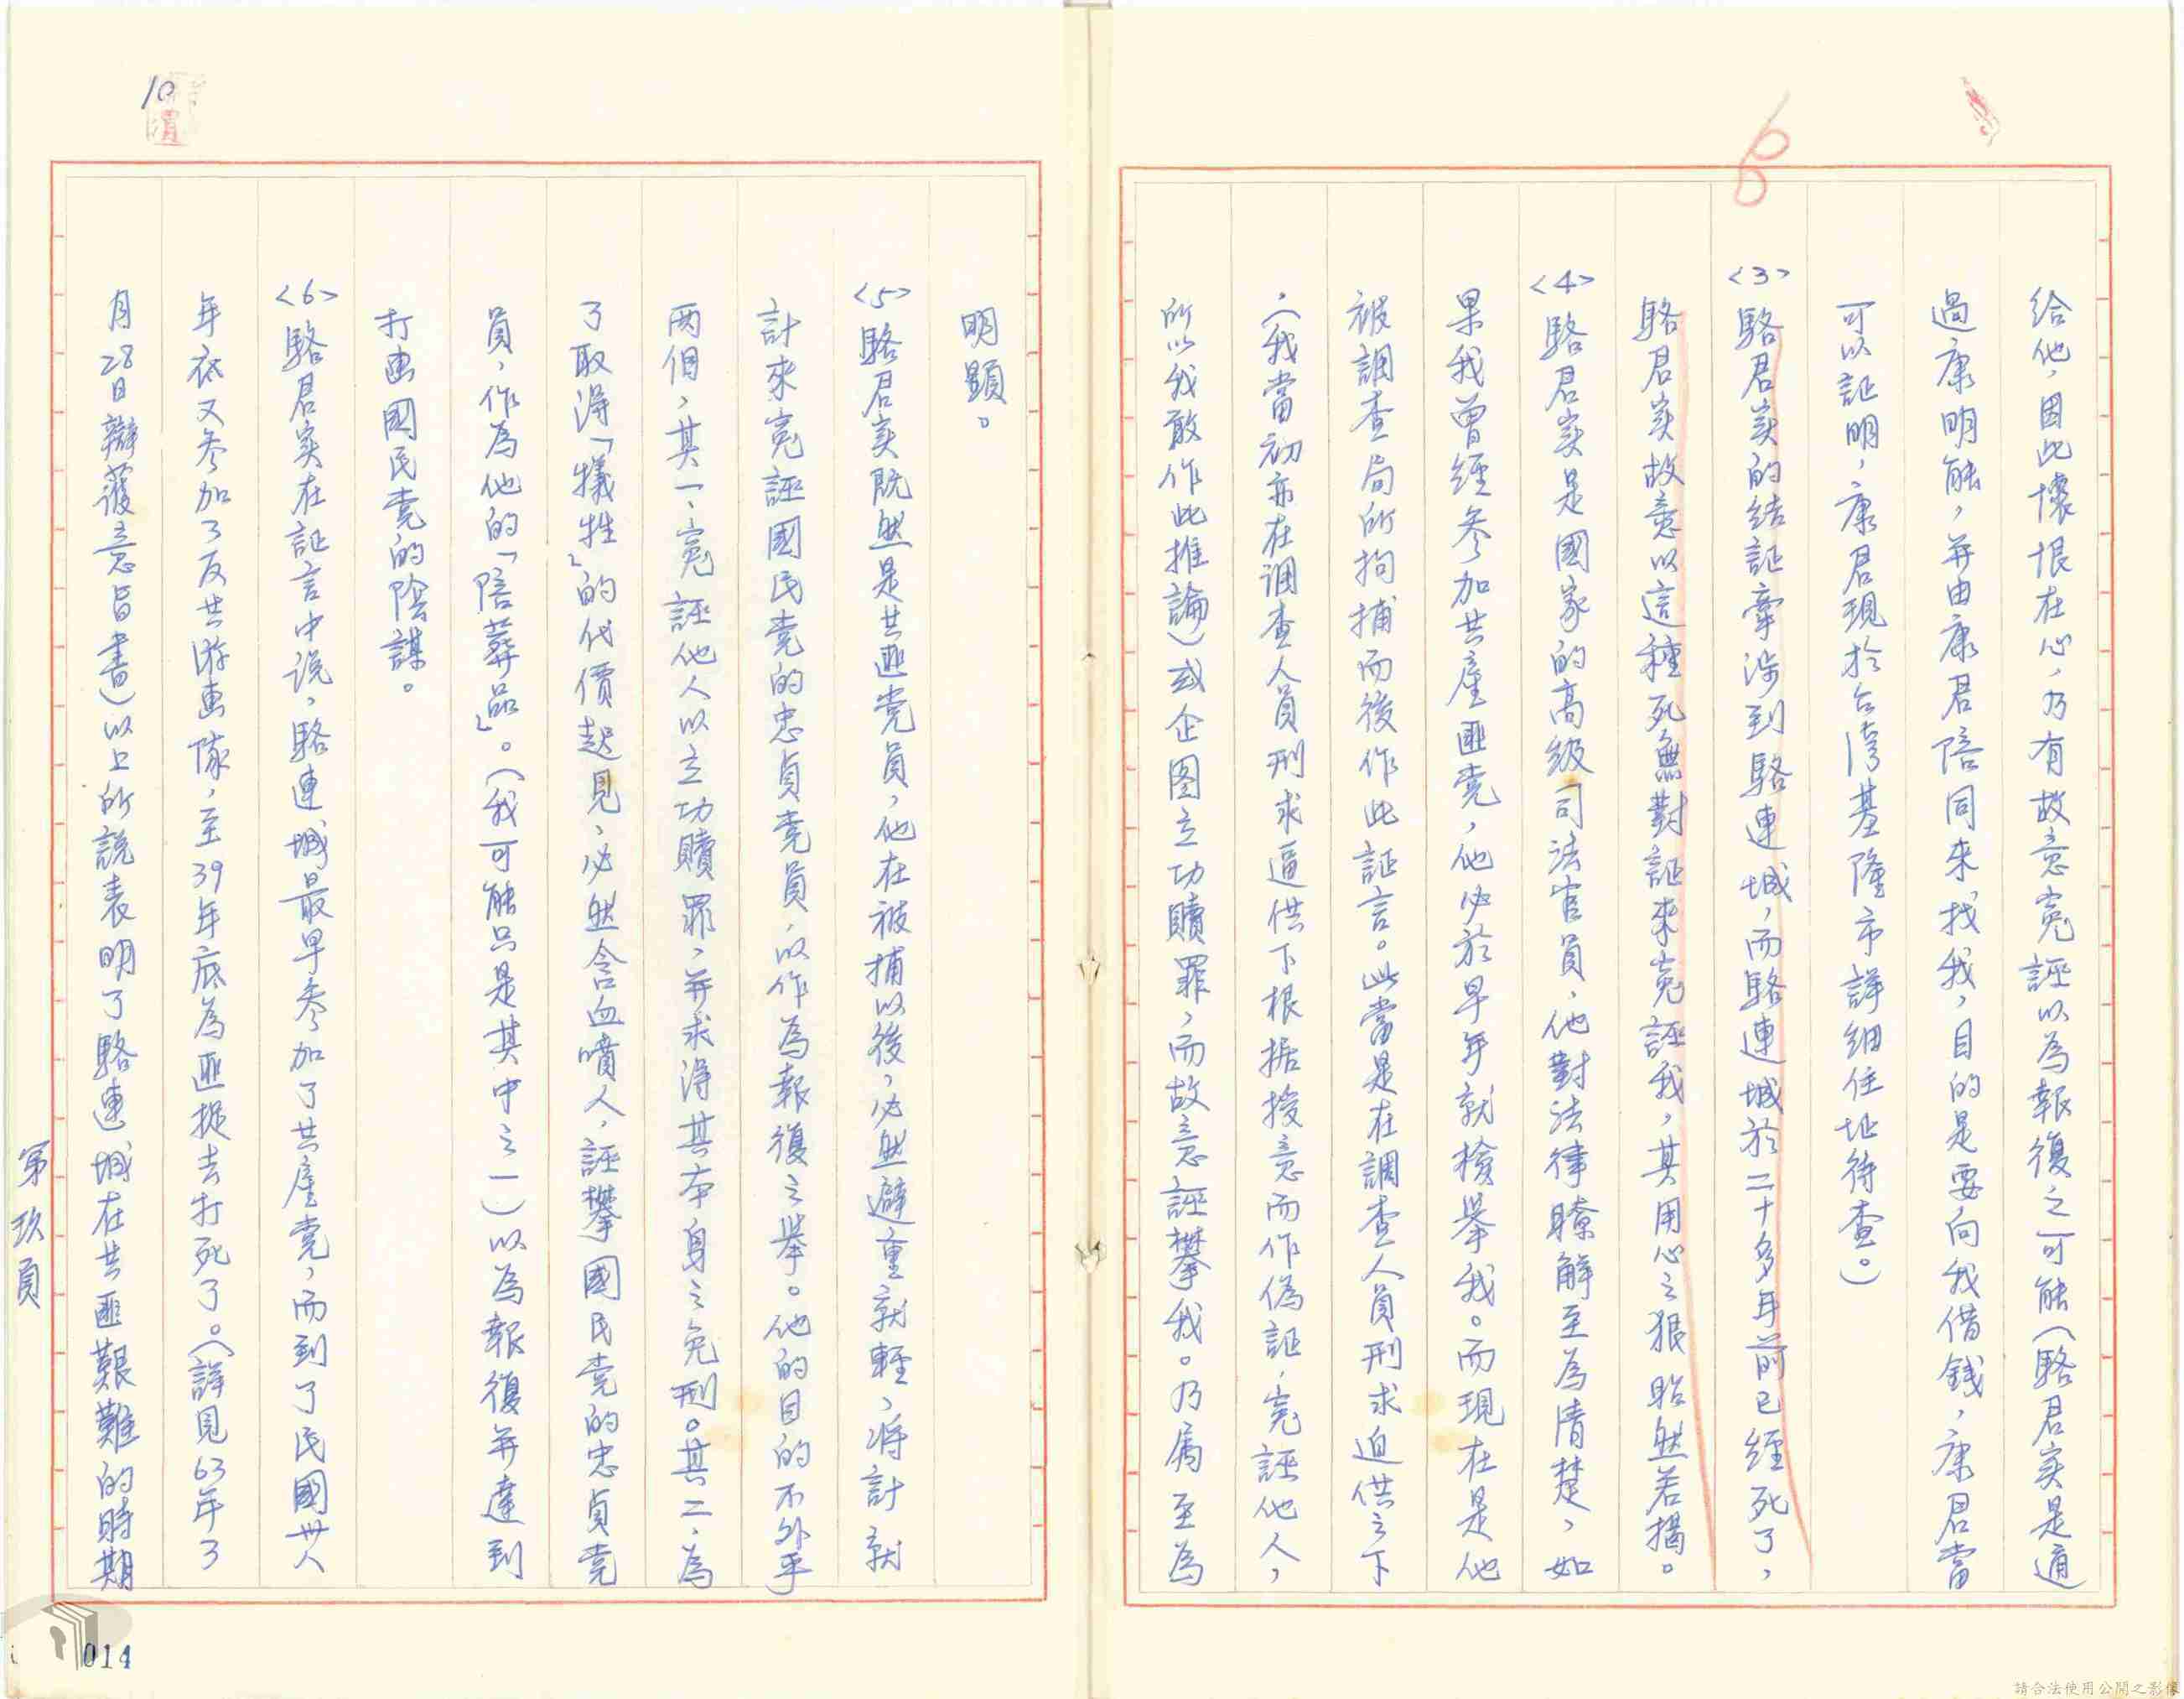 給他，因此懷恨在心，乃有故意冤誣以為報復之可能（駱君実是適
過康明能，并由康君陪同来找我，目的是要向我借錢，康君當
可以証明，康君現於台湾基隆市詳細住址待查。）
<3>駱君実的結証牽涉到駱連城，而駱連城於二十多年前已經死了，
駱君実故意以這種死無對証來冤誣我，其用心之狠昭然若揭。
<4>駱君実是國家的高級司法官員，他對法律瞭解至為清楚，如
果我曾經参加共產匪党，他必於早年就檢舉我。而現在是他
被調查局所拘捕而後作此証言。此當是在調查人員刑求迫供之下
，（我當初亦在調查人員刑求逼供下根据授意而作偽証，冤誣他人，
所以我敢作此推論）或企图立功贖罪，而故意誣攀我。乃屬至為
明顯。
<5>駱君実既然是共匪党員，他在被捕以後，必然避重就輕，将計就
計來冤誣國民党的忠貞党員，以作為報復之舉。他的目的不外乎
两個，其一、冤誣他人以立功贖罪，并求得其本身之免刑。其二、為
了取得「犠牲」的代價起見，必然含血噴人，誣攀國民党的忠貞党
員，作為他的「陪葬品」。（我可能只是其中之一）以為報復并達到
打击國民党的陰謀。
<6>駱君実在証言中说，駱連城最早参加了共產党，而到了民國卅八
年底又参加了反共游击隊，至39年底為匪捉去打死了。（詳見63年3
月28日辯護意旨書）以上所說表明了駱連城在共匪艱難的時期
第玖頁
10
6
014
請合法使用公開之影像